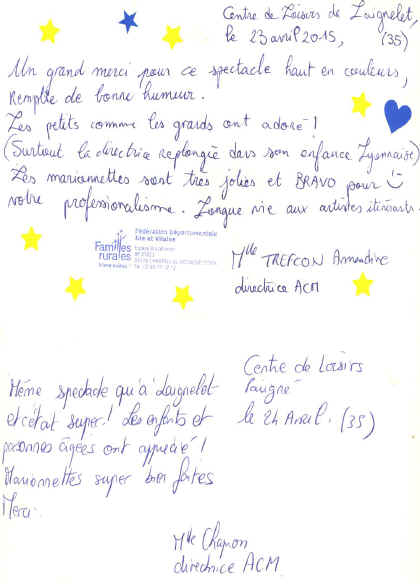 Centre de Loisirs de Laignelet,
le 23 avril 2015, (35)
Un grand merci pour ce spectacle haut en couleurs,
remplie de bonne humeur.
Les petits comme les grands ont adoré !
(Surtout la directrice replongée dans son enfance Lyonnaise)
Les marionnettes sont très jolies et BRAVO pour
votre professionalisme. Longue vie aux artistes itinérants.
Fédération Départementale
Ille et Vilaine
Familles
rurales
Mlle TREFCON Amandine
directrice ACM
Même spectacle qu'à Laignelet
et c'était super ! Les enfants et
personnes âgées ont apprécié !
Marionnettes super bien faites
Merci.
Centre de Loisirs
Paigné
le 24 Avril. (35)
Mlle Chapron
directrice ACM